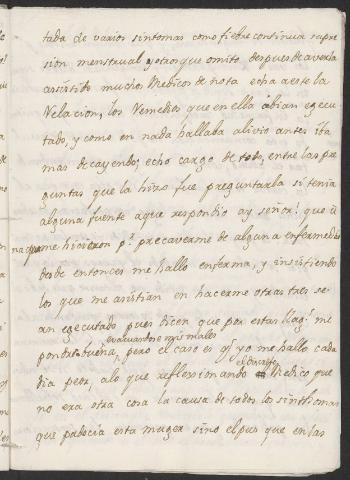 tada de varios sintomas como fiebre continua supre
sion menstrual y otros que omito despues de averla
asistido muchos Medicos de nota echa a este la
Relacion, los Remedios que en ella abian egecu
tado, y como en nada hallaba alivio antes iba
mas decayendo; echo cargo de todo, entre las pre
guntas que la hizo fue preguntarla si tenia
alguna fuente a que respondio ay señor! que
me hicieron p.ª precaverme de alguna enfermedad
desde entonces me hallo enferma, y insistiendo
los que me asistian en hacerme otras tres se
an egecutado pues dicen que por estas llag.s me
evacuando mis males
pondre buena, pero el caso es q.e yo me hallo cada
el discreto
dia peor, a lo que reflessionando Medico que
no era otra cosa la causa de todos los sinthomas
que padecia esta muger sino el pus que en las